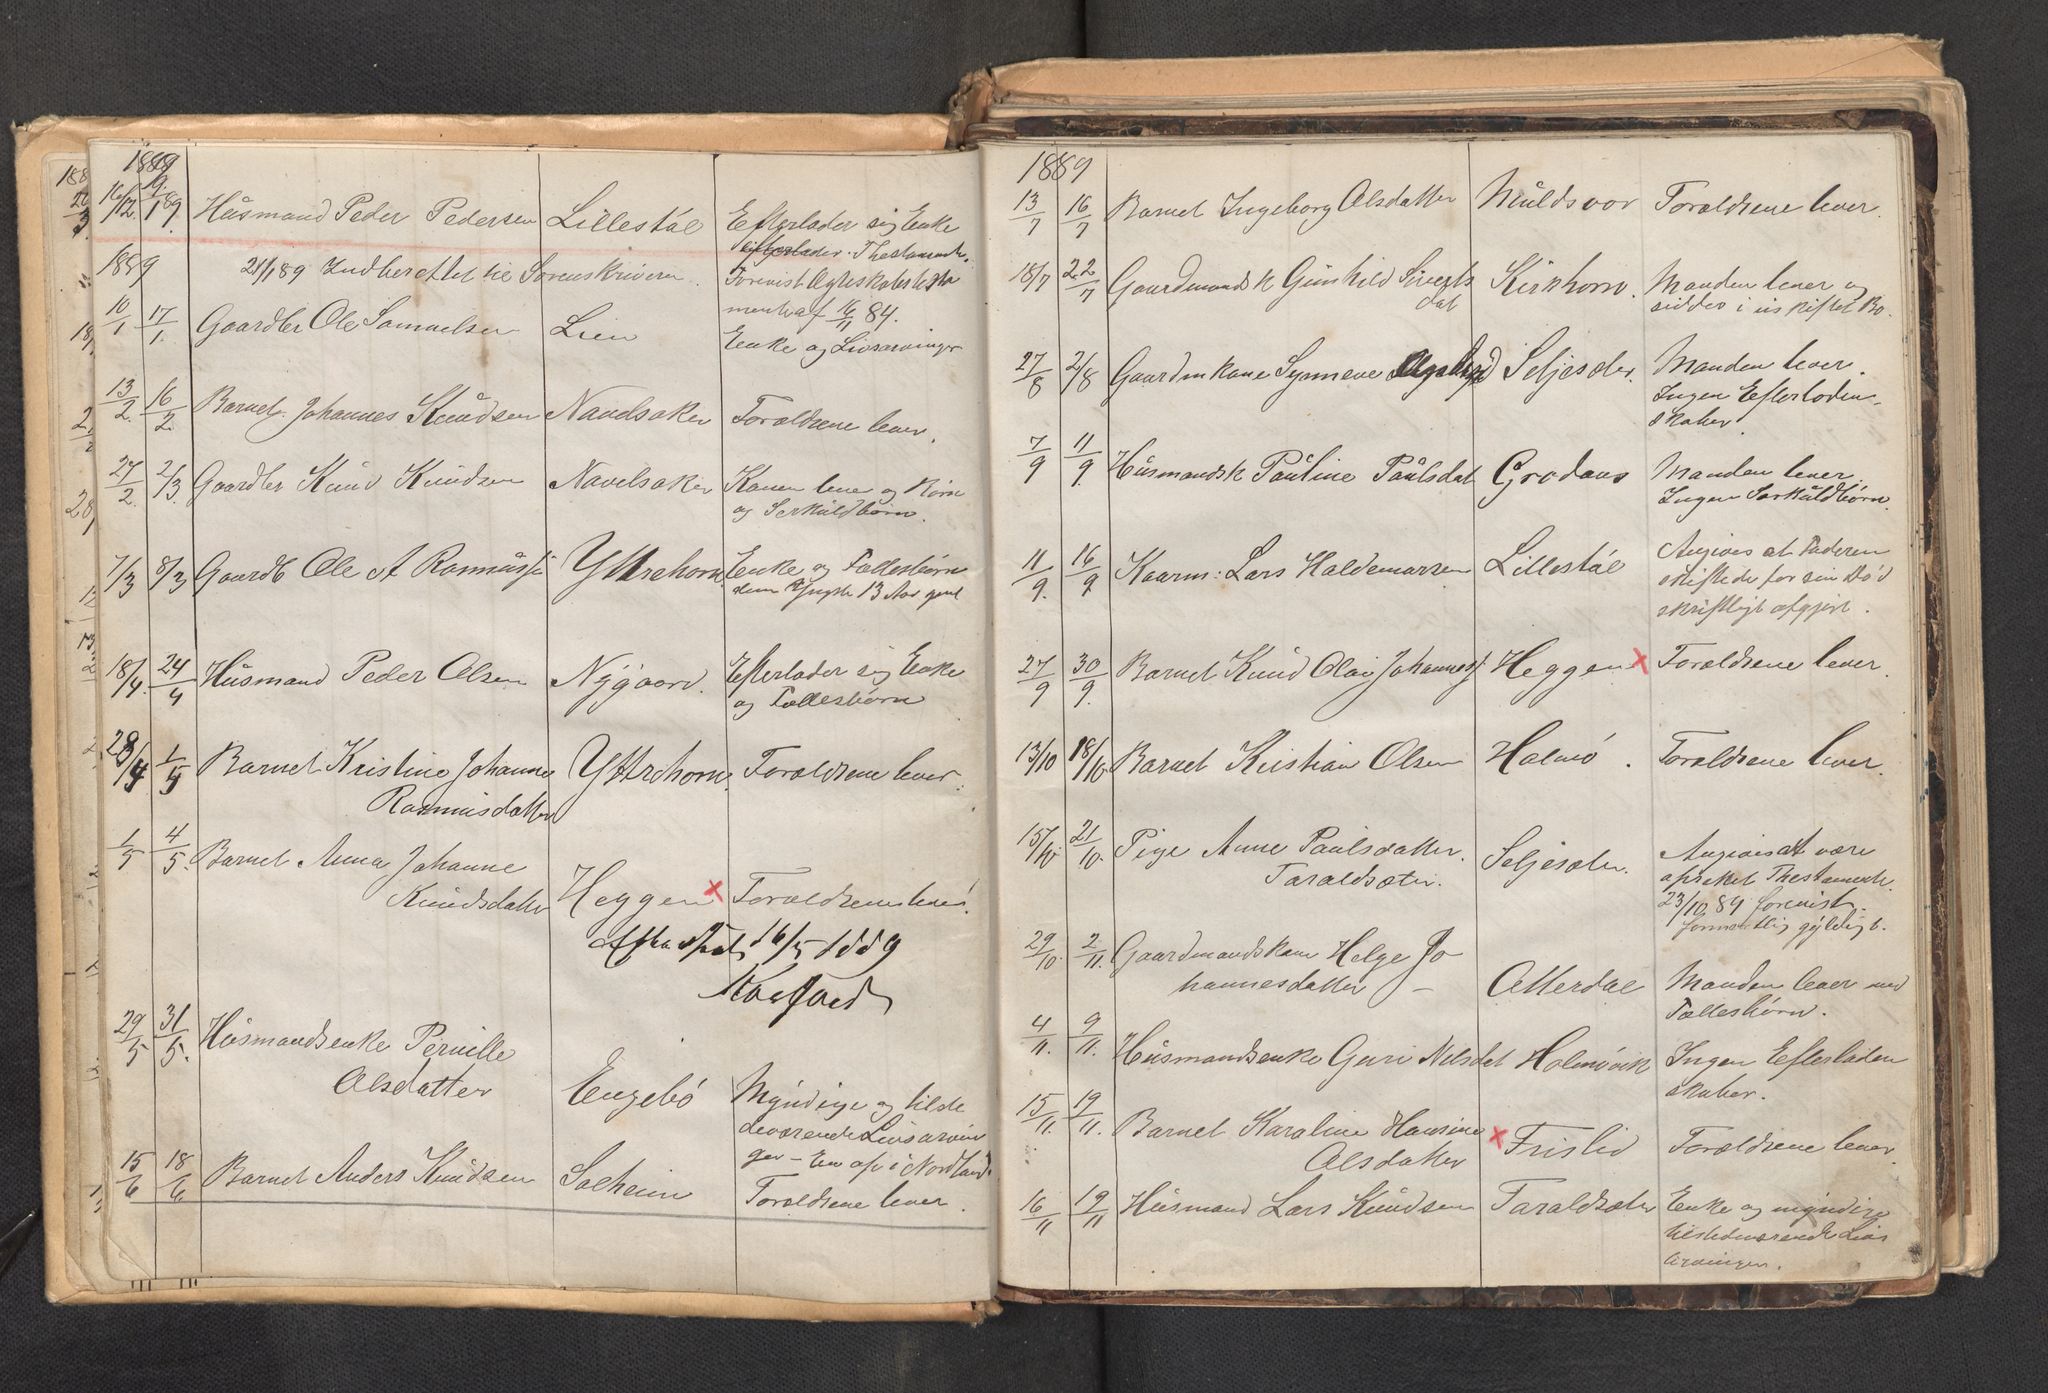 1889
16/12 9/1 89. Husmand Peder Pedersen Lillestøl Efterlader sig Enke
efterlader. Thestament.
1889 21/1 89 Indberettet til Sorenskriveren. Forevist Ægteskabstesta
ment af 16/11 84.
10/1 17/1. Gaardbr Ole Samuelsen Lien Enke og Livsarvinger
13/2. 16/2. Barnet Johannes Knudsen Navelsaker Forældrene lever.
27/2. 2/3. Gaardbr Knud Knudsen Navelsaker Konen lever og Børn
og Særkuldbørn.
7/3 8/3 Gaardb Ole A Rasmuss Yttrehorn Enke og Fællesbørn
den Yngste 13 Aar gml
18/4. 24/4 Husmand Peder Olsen Nygaard. Efterlader sig Enke
og Fællesbørn
28/4 1/5 Barnet Kristine Johanne Yttrehorn. Forældrene lever.
Rasmusdatter
1/5 4/5. Barnet Anna Johanne
Knudsdatter Heggen x Forældrene lever.
16/5 1889
29/5 31/5. Husmandsenke Pernille
Olsdatter Engebø Myndige og tilste
deværende Livsarvin
ger – En af i Nordland.
15/6 18/6. Barnet Anders Knudsen Solheim Forældrene lever.
1889
13/7 16/7 Barnet Ingeborg Olsdatter Muldsvor Forældrene lever.
18/7 22/7 Gaardmandsk Gunhild Siverts Kirkhorn. Manden lever og
dat sidder i uskiftet Bo.
27/8 2/8 Gaardmkone Synneve Seljesæter. Manden lever.
Ingen Efterladen-
skaber.
7/9 11/9. Husmandsk Pauline Paulsdat Grodaas Manden lever
Ingen Særkuldbørn.
11/9. 16/9 Kaarm: Lars Haldemarsen Lillestøl Angives at Faderen
skiftede før sin Død
skriftligt afgjort.
27/9 30/9. Barnet Knud Olai Johannes Heggen x Forældrene lever.
13/10 18/10 Barnet Kristian Olsen Holmø. Forældrene lever.
15/10. 21/10. Pige Anne Paulsdatter. Seljesæter. Angives at være
Taraldsæter. oprettet Thestament.
23/10 89 forevist.
formentlig gyldigt.
29/10 2/11. Gaardmandskone Helge Jo
hannesdatter – Otterdal Manden lever med
Fællesbørn.
4/11. 9/11. Husmandsenke Guri Nilsdat Holmøvik Ingen Efterladen
skaber.
15/11. 19/11. Barnet Karoline Hansine x Frislid Forældrene lever.
Olsdatter
16/11 19/11 Husmand Lars Knudsen Taraldsæter Enke og myndige
tilstedeværende Livs
arvinger.